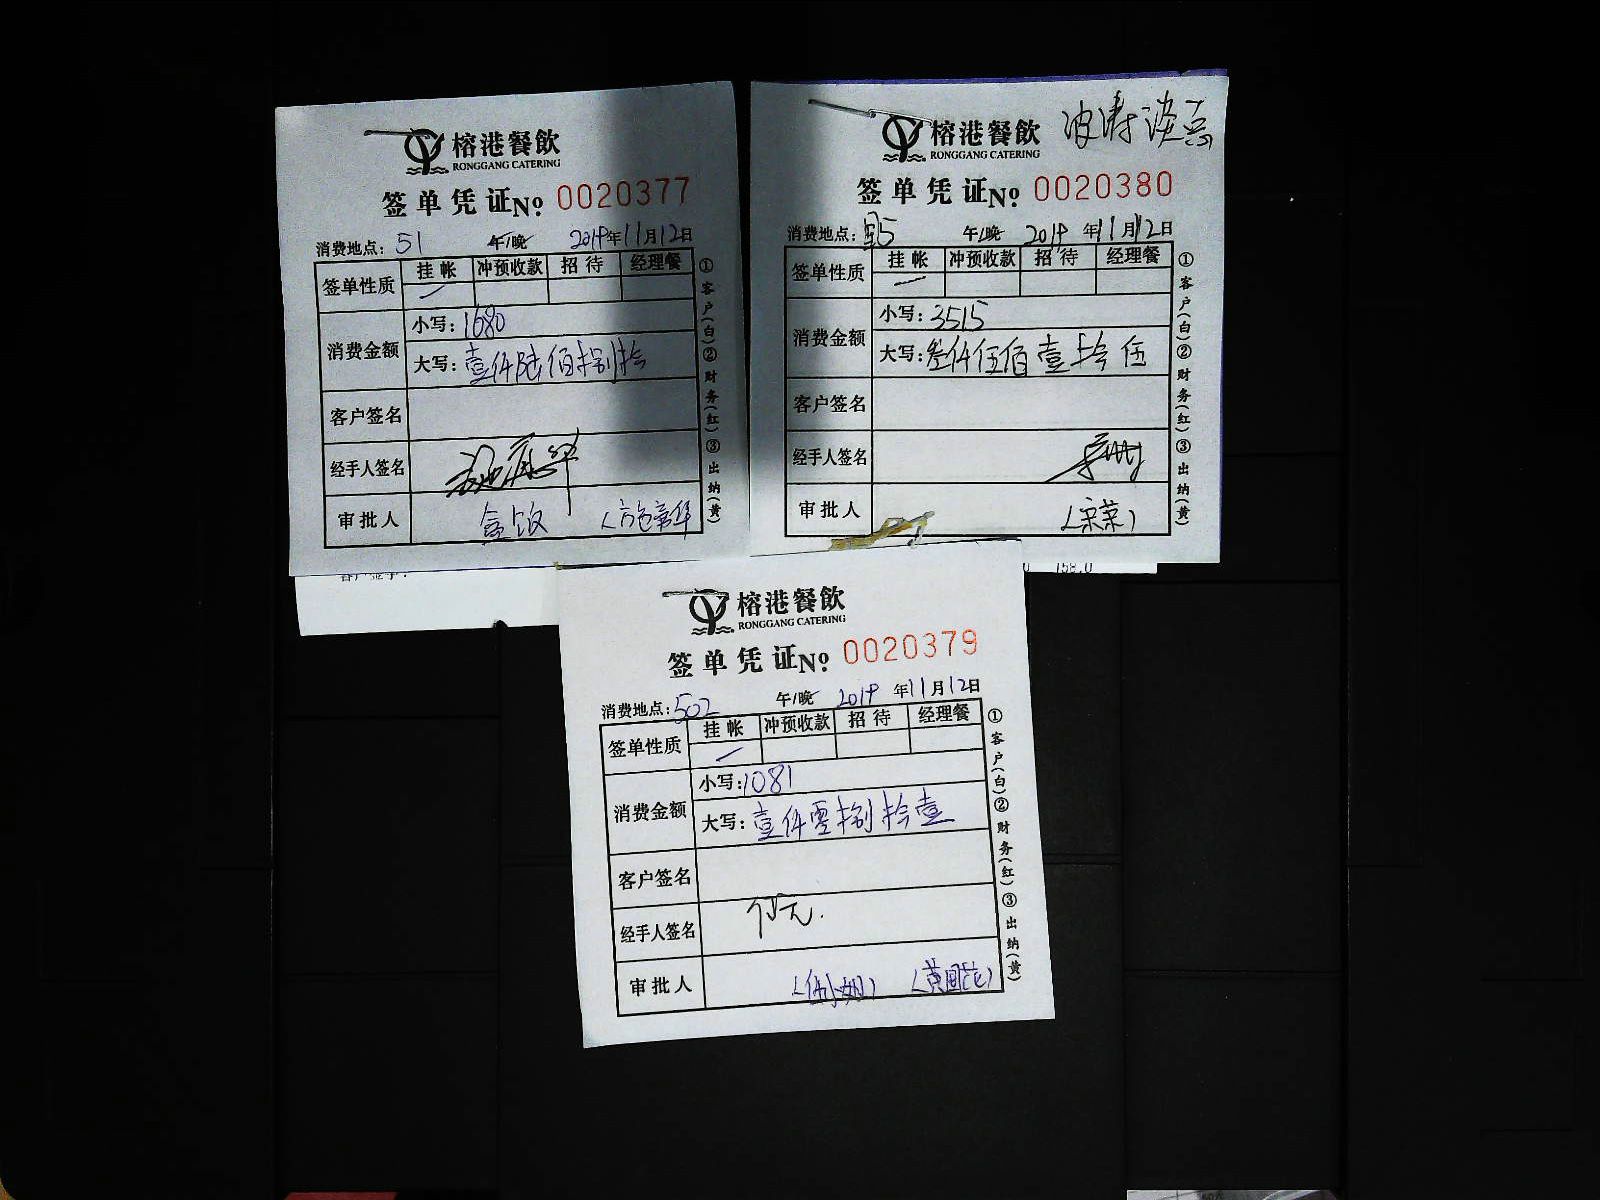 榕港餐飲
RONGGANG CATERING
签单凭证No 0020377
消费地点: 51 午/晚 2019年11月12日
签单性质 挂帐 冲预收款 招待 经理餐
消费金额 小写: 1680
大写: 壹仟陆佰捌拾
客户签名
经手人签名
审批人 盒饭
①客户(白)②财务(红)③出纳(黄)
榕港餐飲
RONGGANG CATERING
签单凭证No 0020380
消费地点: 午/晚 2019年11月12日
签单性质 挂帐 冲预收款 招待 经理餐
消费金额 小写: 3515
大写: 叁仟伍佰壹拾伍
客户签名
经手人签名
审批人
①客户(白)②财务(红)③出纳(黄)
158.0
榕港餐飲
RONGGANG CATERING
签单凭证No 0020379
消费地点: 502 午/晚 2019年11月12日
签单性质 挂帐 冲预收款 招待 经理餐
消费金额 小写: 1081
大写: 壹仟零捌拾壹
客户签名
经手人签名
审批人
①客户(白)②财务(红)③出纳(黄)